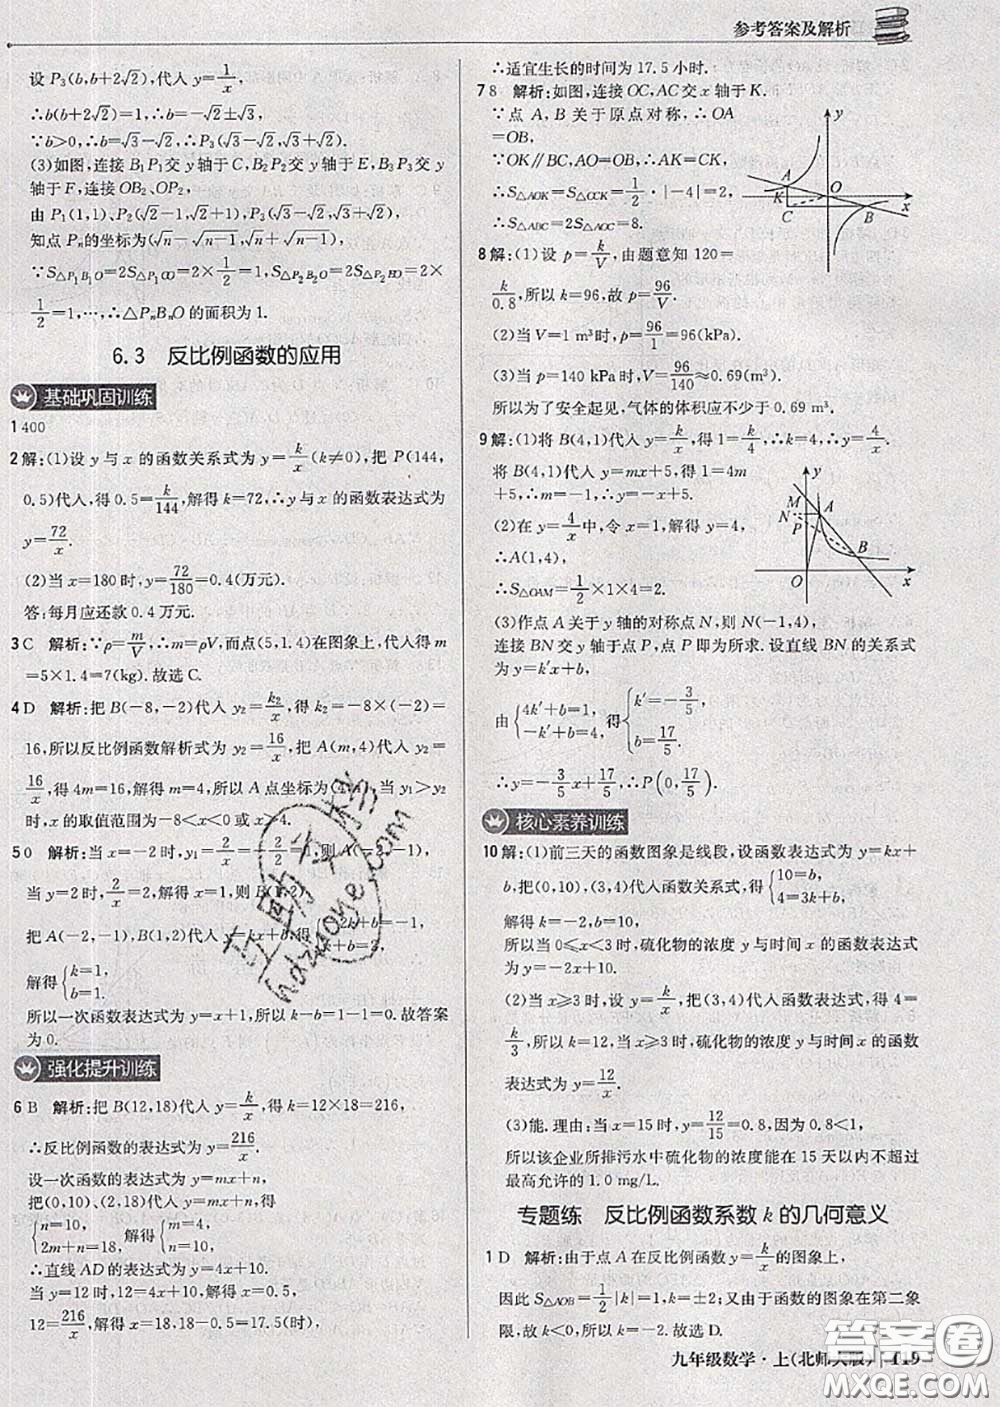 参考答案及解析
设 P₃(b,b+2√2),代入 y=1/x,
∴b(b+2√2)=1,∴b=-√2±√3,
∵b>0,∴b=√3-√2,∴P₃(√3-√2,√3+√2).
(3)如图,连接 B₁P₁交 y 轴于 C,B₂P₂交 y 轴于 E,B₃P₃交 y
轴于 F,连接 OB₂,OP₂,
由 P₁(1,1)、P₂(√2-1,√2+1),P₃(√3-√2,√3+√2),
知点 Pₙ的坐标为(√n-√n-1,√n+√n-1),
∵S△P₁B₁O=2S△P₁CO=2×1/2=1,S△P₂B₂O=2S△P₂EO=2×
1/2=1,…,∴△PₙBₙO 的面积为 1.
6.3 反比例函数的应用
基础巩固训练
1 400
2 解:(1)设 y 与 x 的函数关系式为 y=k/x(k≠0),把 P(144,
0.5)代入,得 0.5=k/144,解得 k=72,∴y 与 x 的函数表达式为
y=72/x.
(2)当 x=180 时,y=72/180=0.4(万元).
答:每月应还款 0.4 万元.
3 C 解析:∵ρ=m/V,∴m=ρV,而点(5,1.4)在图象上,代入得 m
=5×1.4=7(kg).故选 C.
4 D 解析:把 B(-8,-2)代入 y₂=k₂/x,得 k₂=-8×(-2)=
16,所以反比例函数解析式为 y₂=16/x,把 A(m,4)代入 y₂=
16/x,得 4m=16,解得 m=4,所以 A 点坐标为(4,4),当 y₁>y₂
时,x 的取值范围为-8<x<0 或 x>4.
5 0 解析:当 x=-2 时,y₁=2/x=2/-2=-1,则 A(-2,-1),
当 y=2 时,2/x=2,解得 x=1,则 B(1,2).
把 A(-2,-1),B(1,2)代入 y=kx+b,得{-2k+b=-1, k+b=2,
解得{k=1, b=1.
所以一次函数表达式为 y=x+1,所以 k-b=1-1=0.故答案
为 0.
强化提升训练
6 B 解析:把 B(12,18)代入 y=k/x,得 k=12×18=216,
∴反比例函数的表达式为 y=216/x.
设一次函数的表达式为 y=mx+n,
把(0,10)、(2,18)代入 y=mx+n,得
{n=10, 2m+n=18, 解得{m=4, n=10,
∴直线 AD 的表达式为 y=4x+10,
当 y=12 时,12=4x+10,解得 x=0.5,
12=216/x,解得 x=18,18-0.5=17.5(时),
∴适宜生长的时间为 17.5 小时.
7 8 解析:如图,连接 OC,AC 交 x 轴于 K.
∵点 A,B 关于原点对称,∴OA
=OB,
∵OK∥BC,AO=OB,∴AK=CK,
∴S△AOK=S△CCK=1/2·|-4|=2,
∴S△ABC=2S△AOC=8.
y A K O C B x
8 解:(1)设 p=k/V,由题意知 120=
k/0.8,所以 k=96,故 p=96/V.
(2)当 V=1 m³时,p=96/1=96(kPa).
(3)当 p=140 kPa 时,V=96/140≈0.69(m³).
所以为了安全起见,气体的体积应不少于 0.69 m³.
9 解:(1)将 B(4,1)代入 y=k/x,得 1=k/4,∴k=4,∴y=4/x.
将 B(4,1)代入 y=mx+5,得 1=4m
+5,∴m=-1,∴y=-x+5.
(2)在 y=4/x中,令 x=1,解得 y=4,
∴A(1,4),
∴S△OAM=1/2×1×4=2.
y M N A P B O x
(3)作点 A 关于 y 轴的对称点 N,则 N(-1,4),
连接 BN 交 y 轴于点 P,点 P 即为所求.设直线 BN 的关系式
为 y=k′x+b,
由{4k′+b=1, -k′+b=4, 得{k′=-3/5, b=17/5.
∴y=-3/5x+17/5,∴P(0,17/5)
核心素养训练
10 解:(1)前三天的函数图象是线段,设函数表达式为 y=kx+
b,把(0,10),(3,4)代入函数关系式,得{10=b, 4=3k+b,
解得 k=-2,b=10,
所以当 0≤x<3 时,硫化物的浓度 y 与时间 x 的函数表达式
为 y=-2x+10;
(2)当 x≥3 时,设 y=k/x,把(3,4)代入函数表达式,得 4=
k/3,所以 k=12,所以当 x≥3 时,硫化物的浓度 y 与时间 x 的
函数表达式为 y=12/x;
(3)能.理由:当 x=15 时,y=12/15=0.8,因为 0.8<1,
所以该企业所排污水中硫化物的浓度能在 15 天以内不超过
最高允许的 1.0 mg/L.
专题练 反比例函数系数 k 的几何意义
1 D 解析:由于点 A 在反比例函数 y=k/x的图象上,
因此 S△AOB=1/2|k|=1,k=±2;又由于函数的图象在第二象
限,故 k<0,所以 k=-2.故选 D.
九年级数学·上(北师大版) 119
答案圈
MXQE.COM
hdzuoye.com